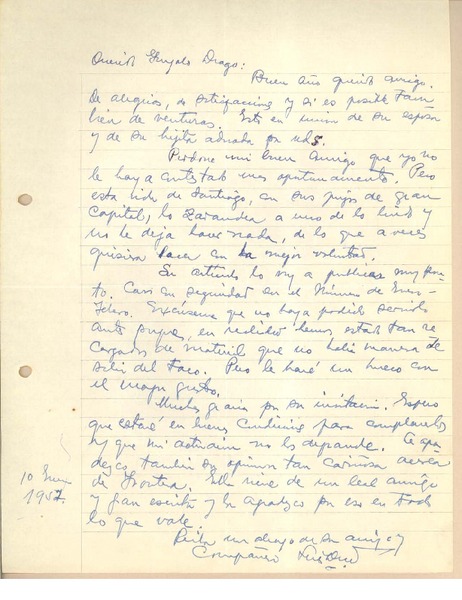 Querido Gonzalo Drago:
Buen año querido amigo.
De alegrías, de satisfacciones y si es posible tam-
bién de venturas. Esto en unión de su esposa
y de su hijita adorada por uds.
Perdone mi buen amigo que yo no
le haya contestado mas oportunamente. Pero
esta vida de Santiago, con sus pujos de gran
capital, lo zarandea a uno de lo lindo y
no le deja hacer nada, de lo que a veces
quisiera hacer con la mejor voluntad.
Su artículo lo voy a publicar muy pron-
to. Casi con seguridad en el Número de Enero-
Febrero. Excúseme que no haya podido servirlo
antes porque, en realidad hemos estado tan re
cargados de material que no había manera de
salir del taco. Pero le haré un hueco con
el mayor gusto.
Muchas gracias por su invitación. Espero
que estaré en buenas condiciones para complacerlos
y que mi actuación no los defraude. Le agra-
dezco también su opinión tan cariñosa acerca
de Frontera. Ella viene de un leal amigo
y gran escritor y la agradezco por eso en todo
lo que vale.
Reciba un abrazo de su amigo y
Compañero
10 Enero
1957.